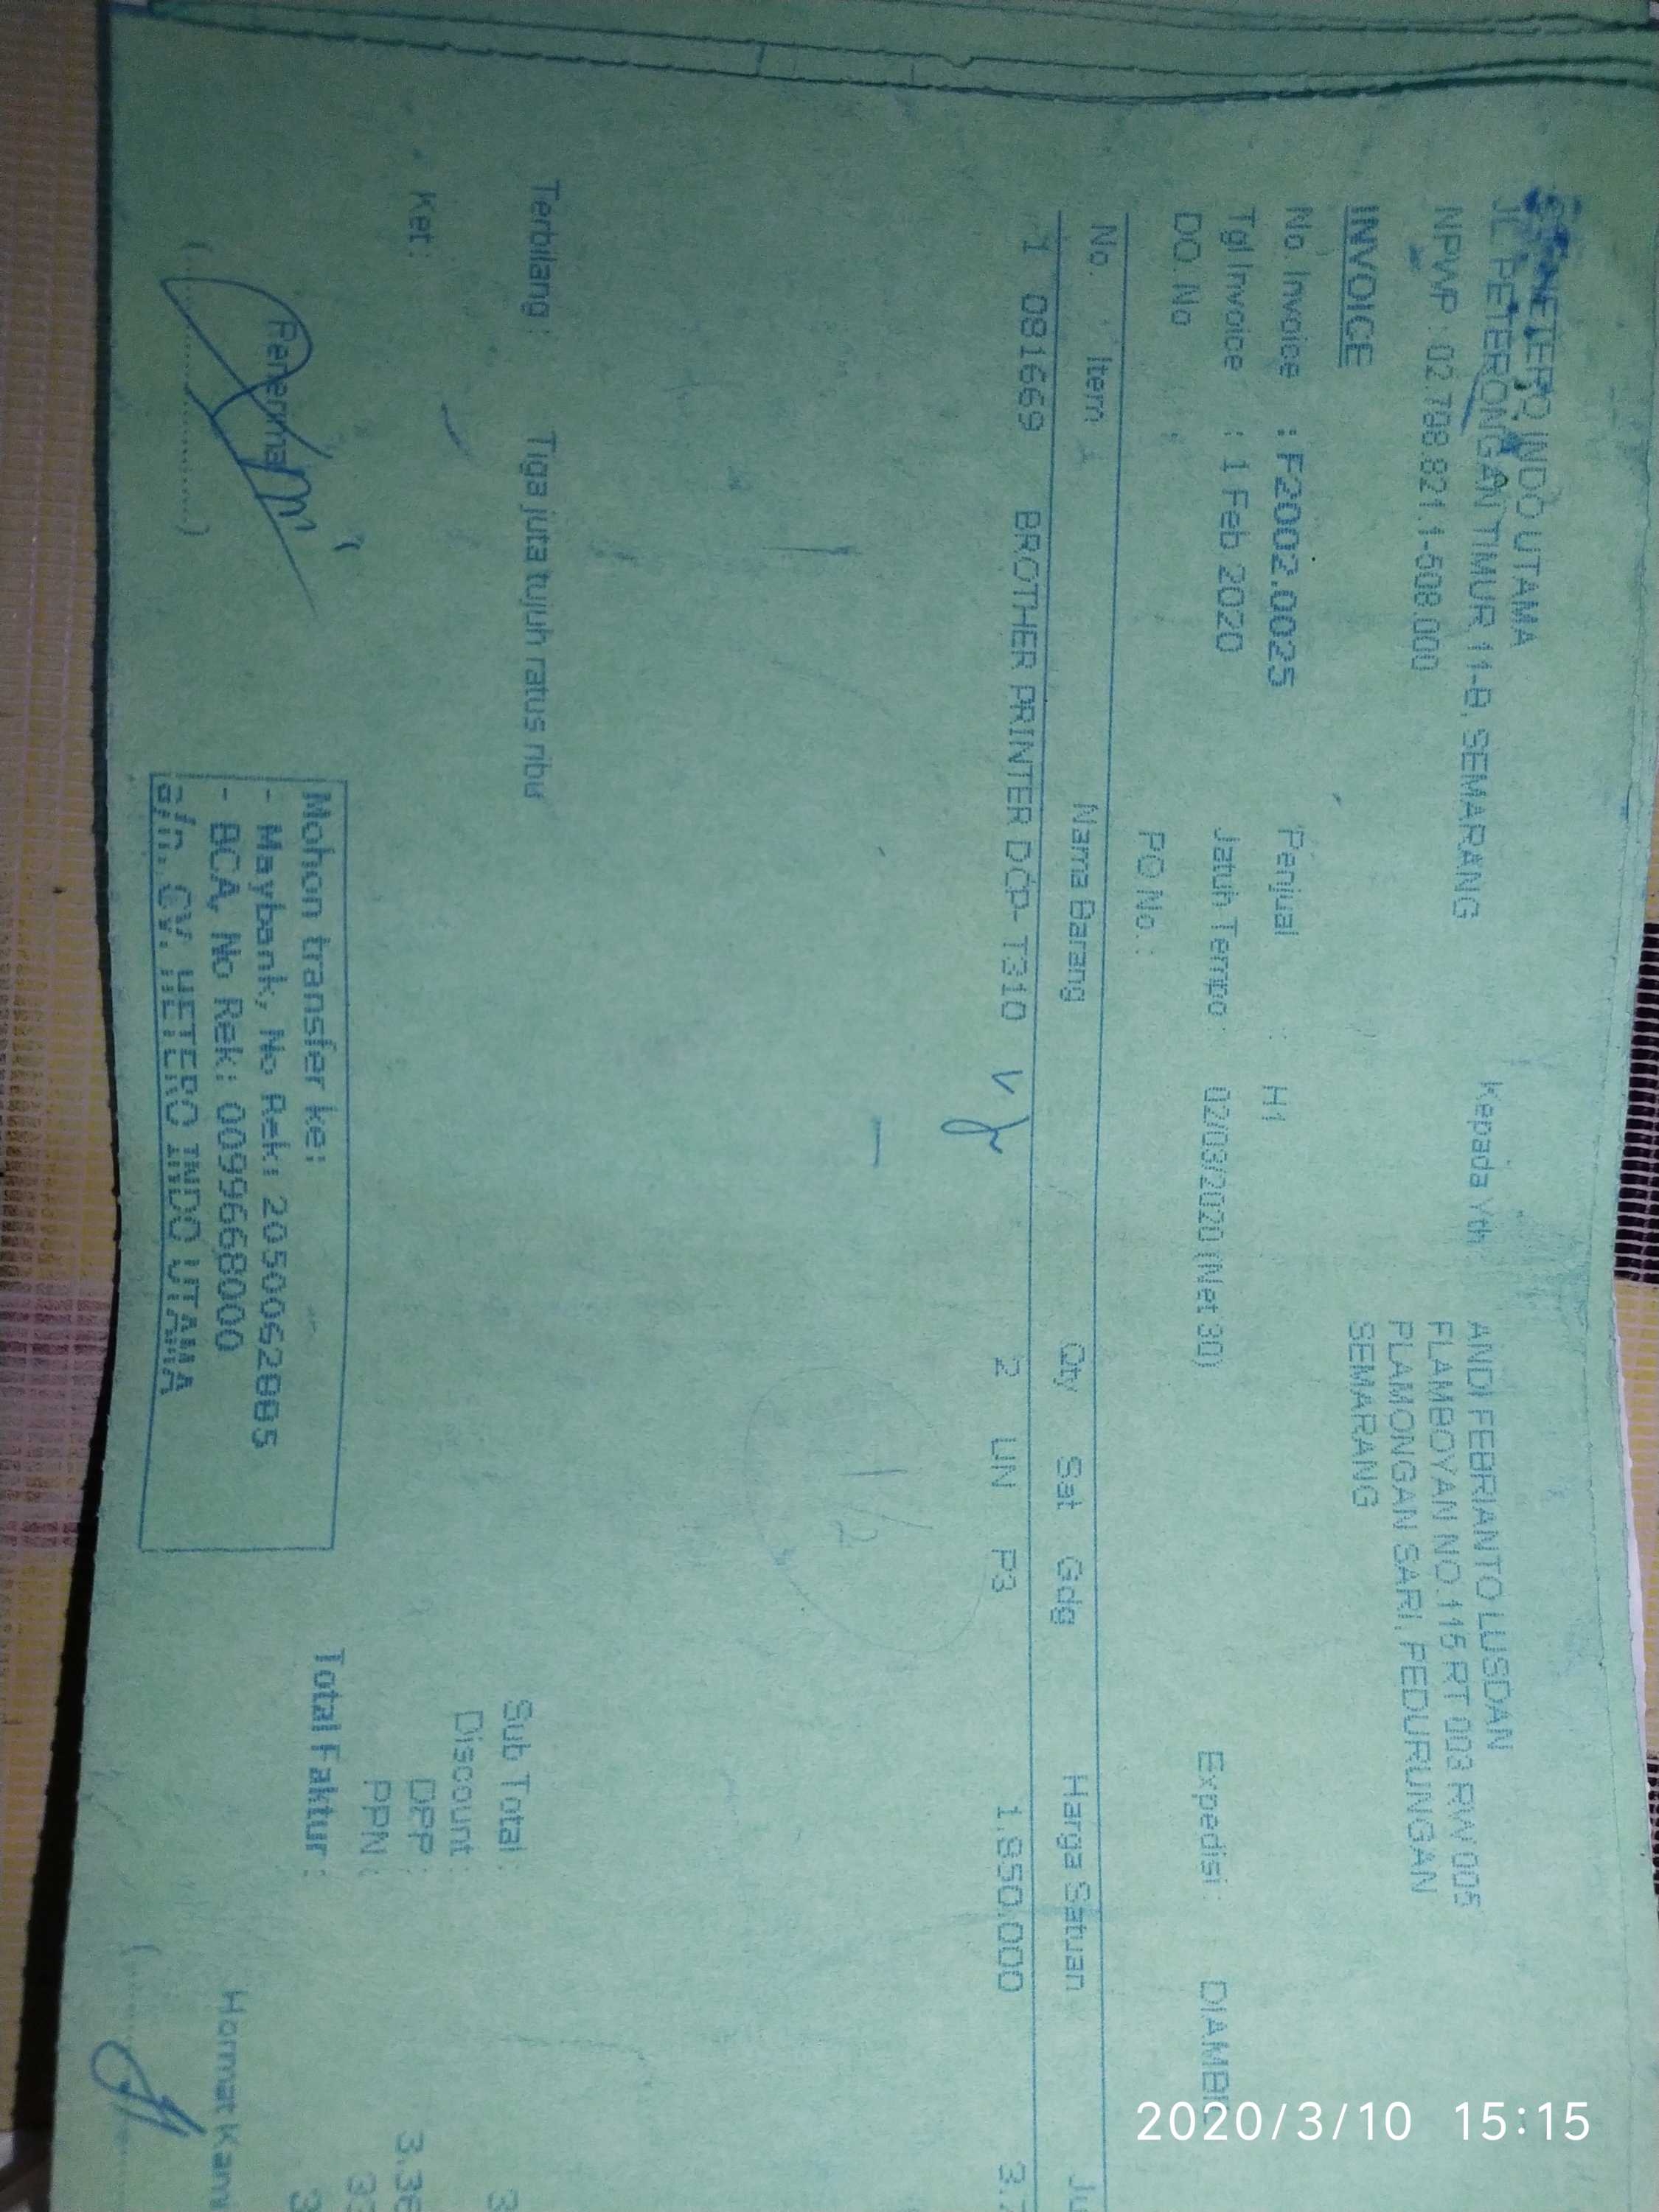 HETERO INDO UTAMA
JL. PETERONGAN TIMUR 11-B, SEMARANG
NPWP : 02.798.821.1-508.000
Kepada Yth
ANDI FEBRIANTO LUSDAN
FLAMBOYAN NO.115 RT 003 RW 005
PLAMONGAN SARI, PEDURUNGAN
SEMARANG
INVOICE
No. Invoice : F2002.0025 Penjual : H1
Tgl Invoice : 1 Feb 2020 Jatuh Tempo : 02/03/2020 (Net 30) Expedisi : DIAMBIL
DO. No PO No. :
No. Item Nama Barang Qty Sat Gdg Harga Satuan Ju
1 081669 BROTHER PRINTER DCP- T310 2 UN P3 1.850.000 3.7
1/2
Terbilang : Tiga juta tujuh ratus ribu
Sub Total : 3
Discount :
Ket : DPP : 3.36
PPN : 33
Total Faktur : 3
Mohon transfer ke:
- Maybank, No Rek: 2050062885
- BCA, No Rek: 0099668000
a/n. CV. HETERO INDO UTAMA
Penerima
Hormat Kami
2020/3/10 15:15